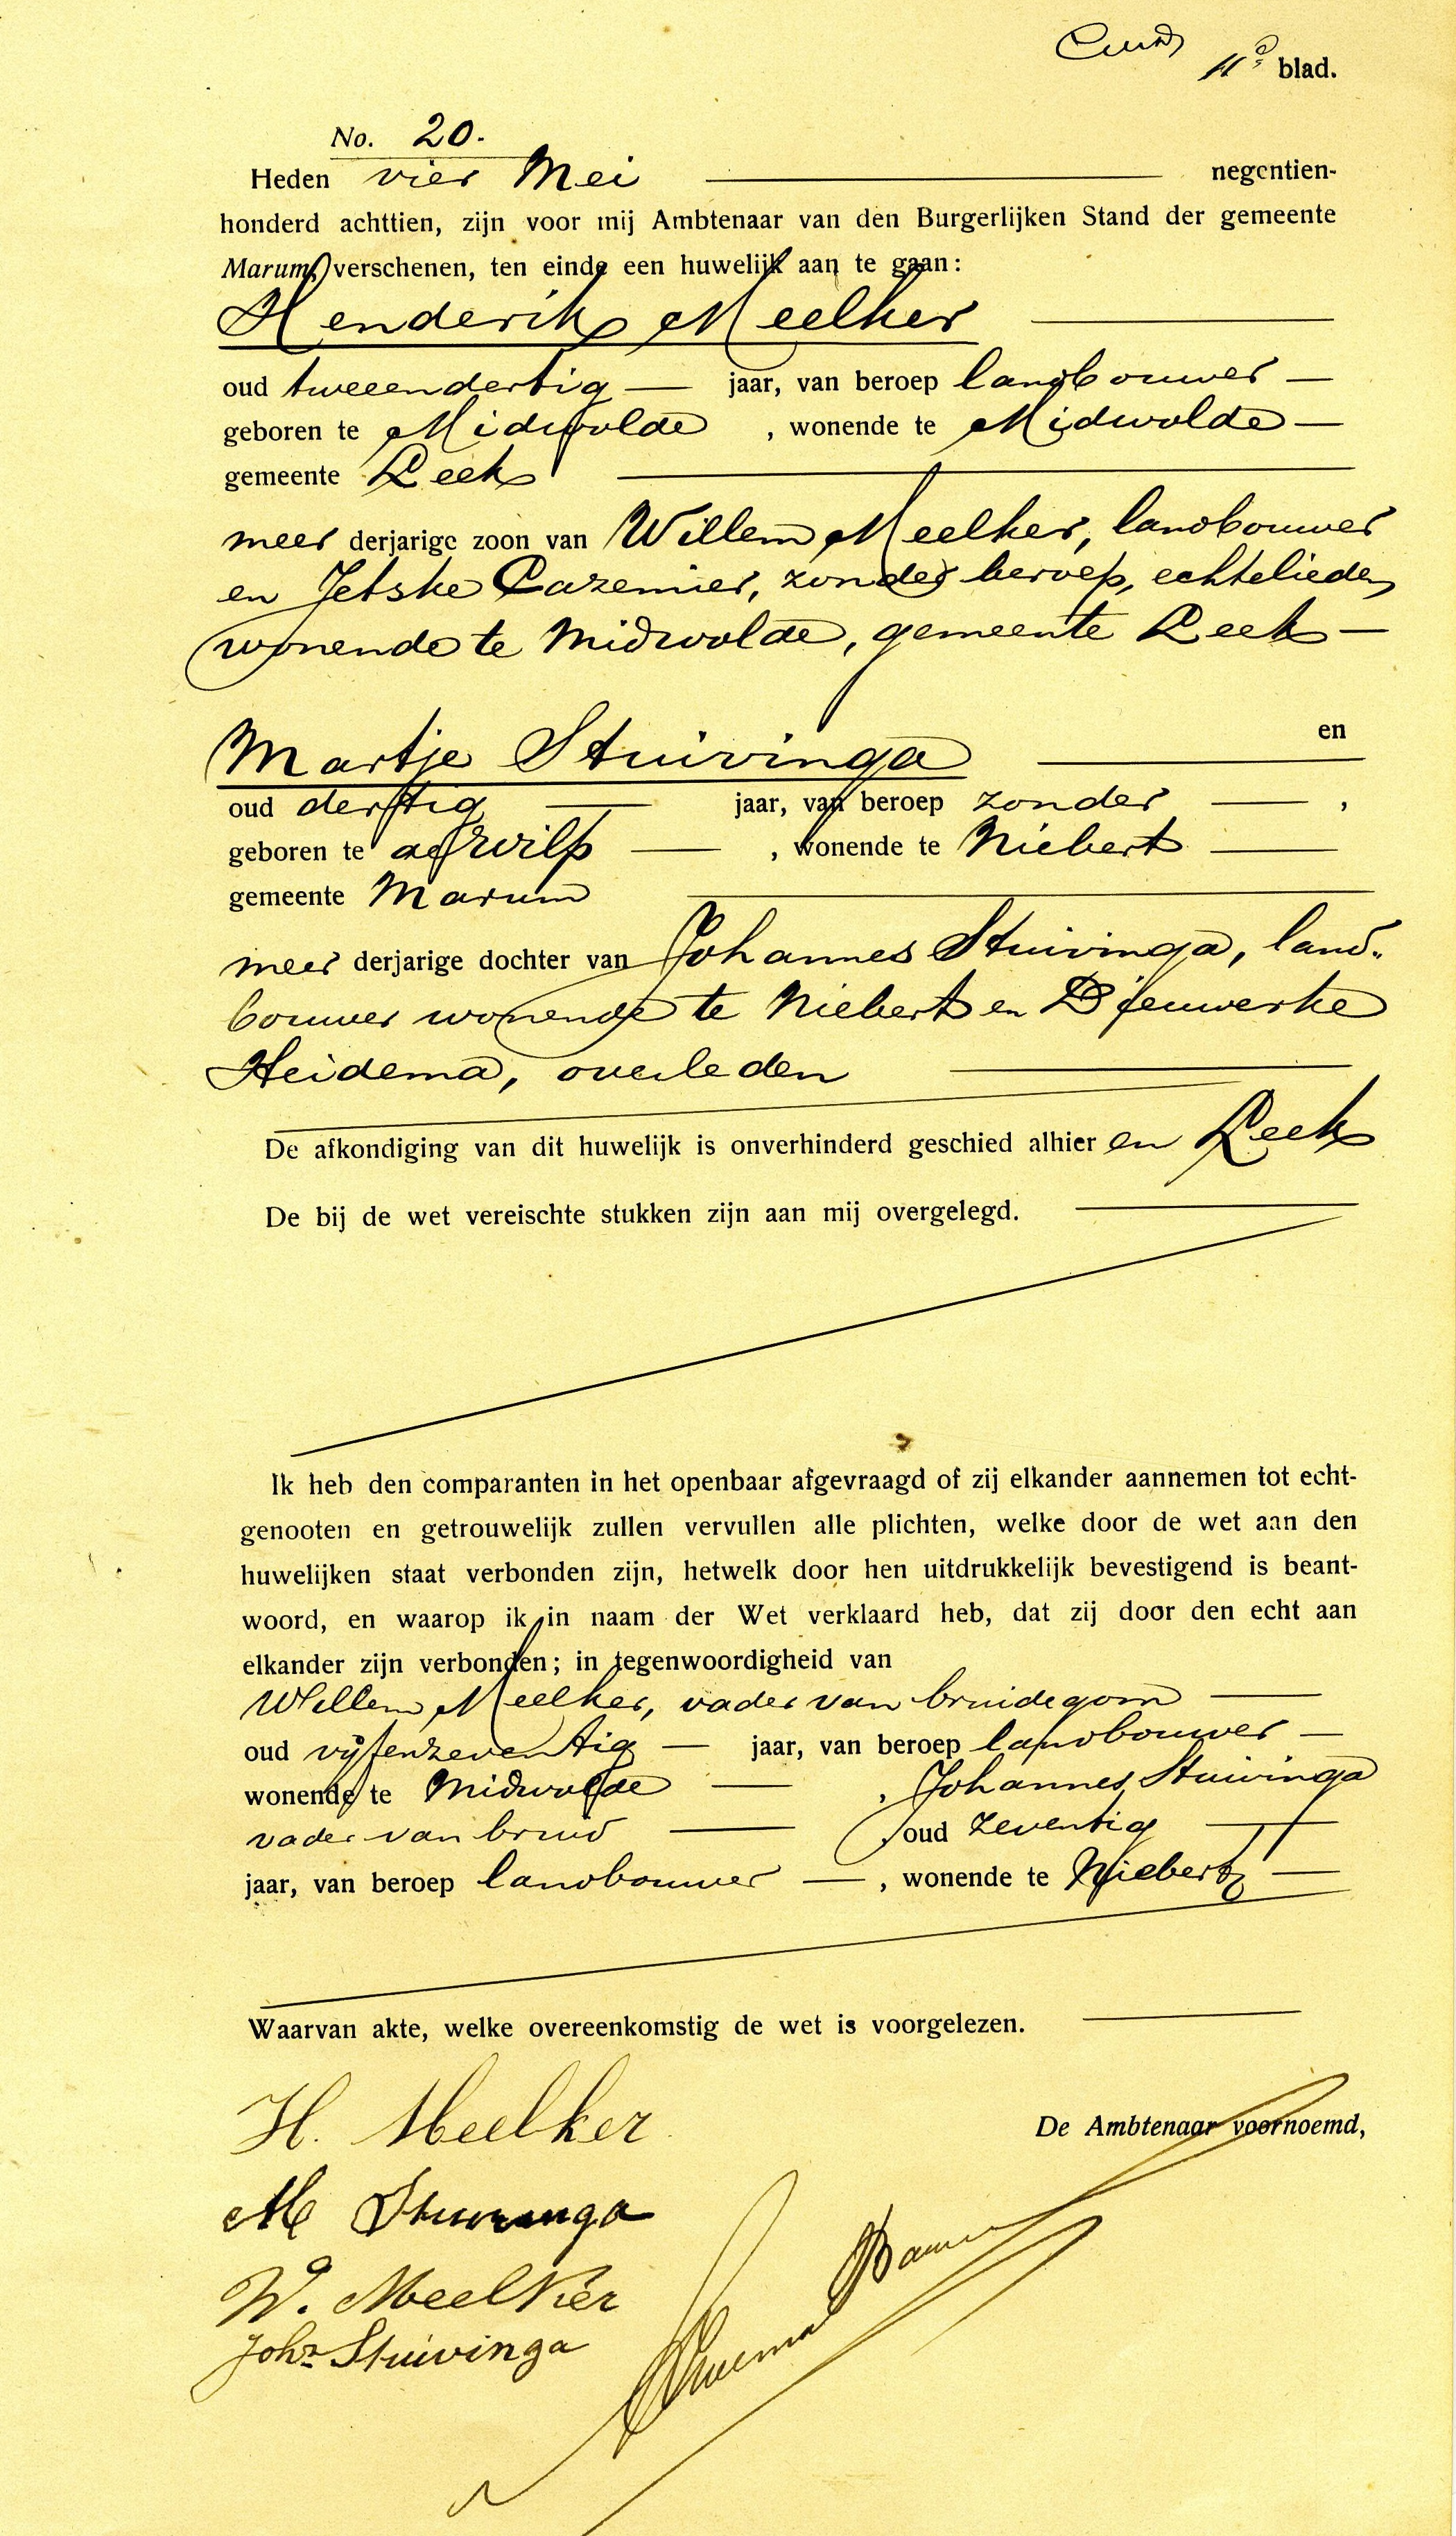 11e blad.
No. 20.
Heden vier Mei negentien-
honderd achttien, zijn voor mij Ambtenaar van den Burgerlijken Stand der gemeente
Marum, verschenen, ten einde een huwelijk aan te gaan:
Henderik Meelker
oud tweeendertig jaar, van beroep landbouwer
geboren te Midwolde, wonende te Midwolde
gemeente Leek
meer derjarige zoon van Willem Meelker, landbouwer
en Jetske Cazemier, zonder beroep, echtelieden
wonende te Midwolde, gemeente Leek
en
Martje Stuivinga
oud dertig jaar, van beroep zonder,
geboren te de Wilp, wonende te Niebert
gemeente Marum
meer derjarige dochter van Johannes Stuivinga, land„
bouwer wonende te Niebert en Djeuwerke
Heidema, overleden
De afkondiging van dit huwelijk is onverhinderd geschied alhier en Leek
De bij de wet vereischte stukken zijn aan mij overgelegd.
Ik heb den comparanten in het openbaar afgevraagd of zij elkander aannemen tot echt-
genooten en getrouwelijk zullen vervullen alle plichten, welke door de wet aan den
huwelijken staat verbonden zijn, hetwelk door hen uitdrukkelijk bevestigend is beant-
woord, en waarop ik in naam der Wet verklaard heb, dat zij door den echt aan
elkander zijn verbonden; in tegenwoordigheid van
Willem Meelker, vader van bruidegom
oud vijfenzeventig jaar, van beroep landbouwer
wonende te Midwolde, Johannes Stuivinga
vader van bruid, oud zeventig
jaar, van beroep landbouwer, wonende te Niebert
Waarvan akte, welke overeenkomstig de wet is voorgelezen.
De Ambtenaar voornoemd,
H. Meelker
M Stuivinga
W. Meelker
Johs Stuivinga